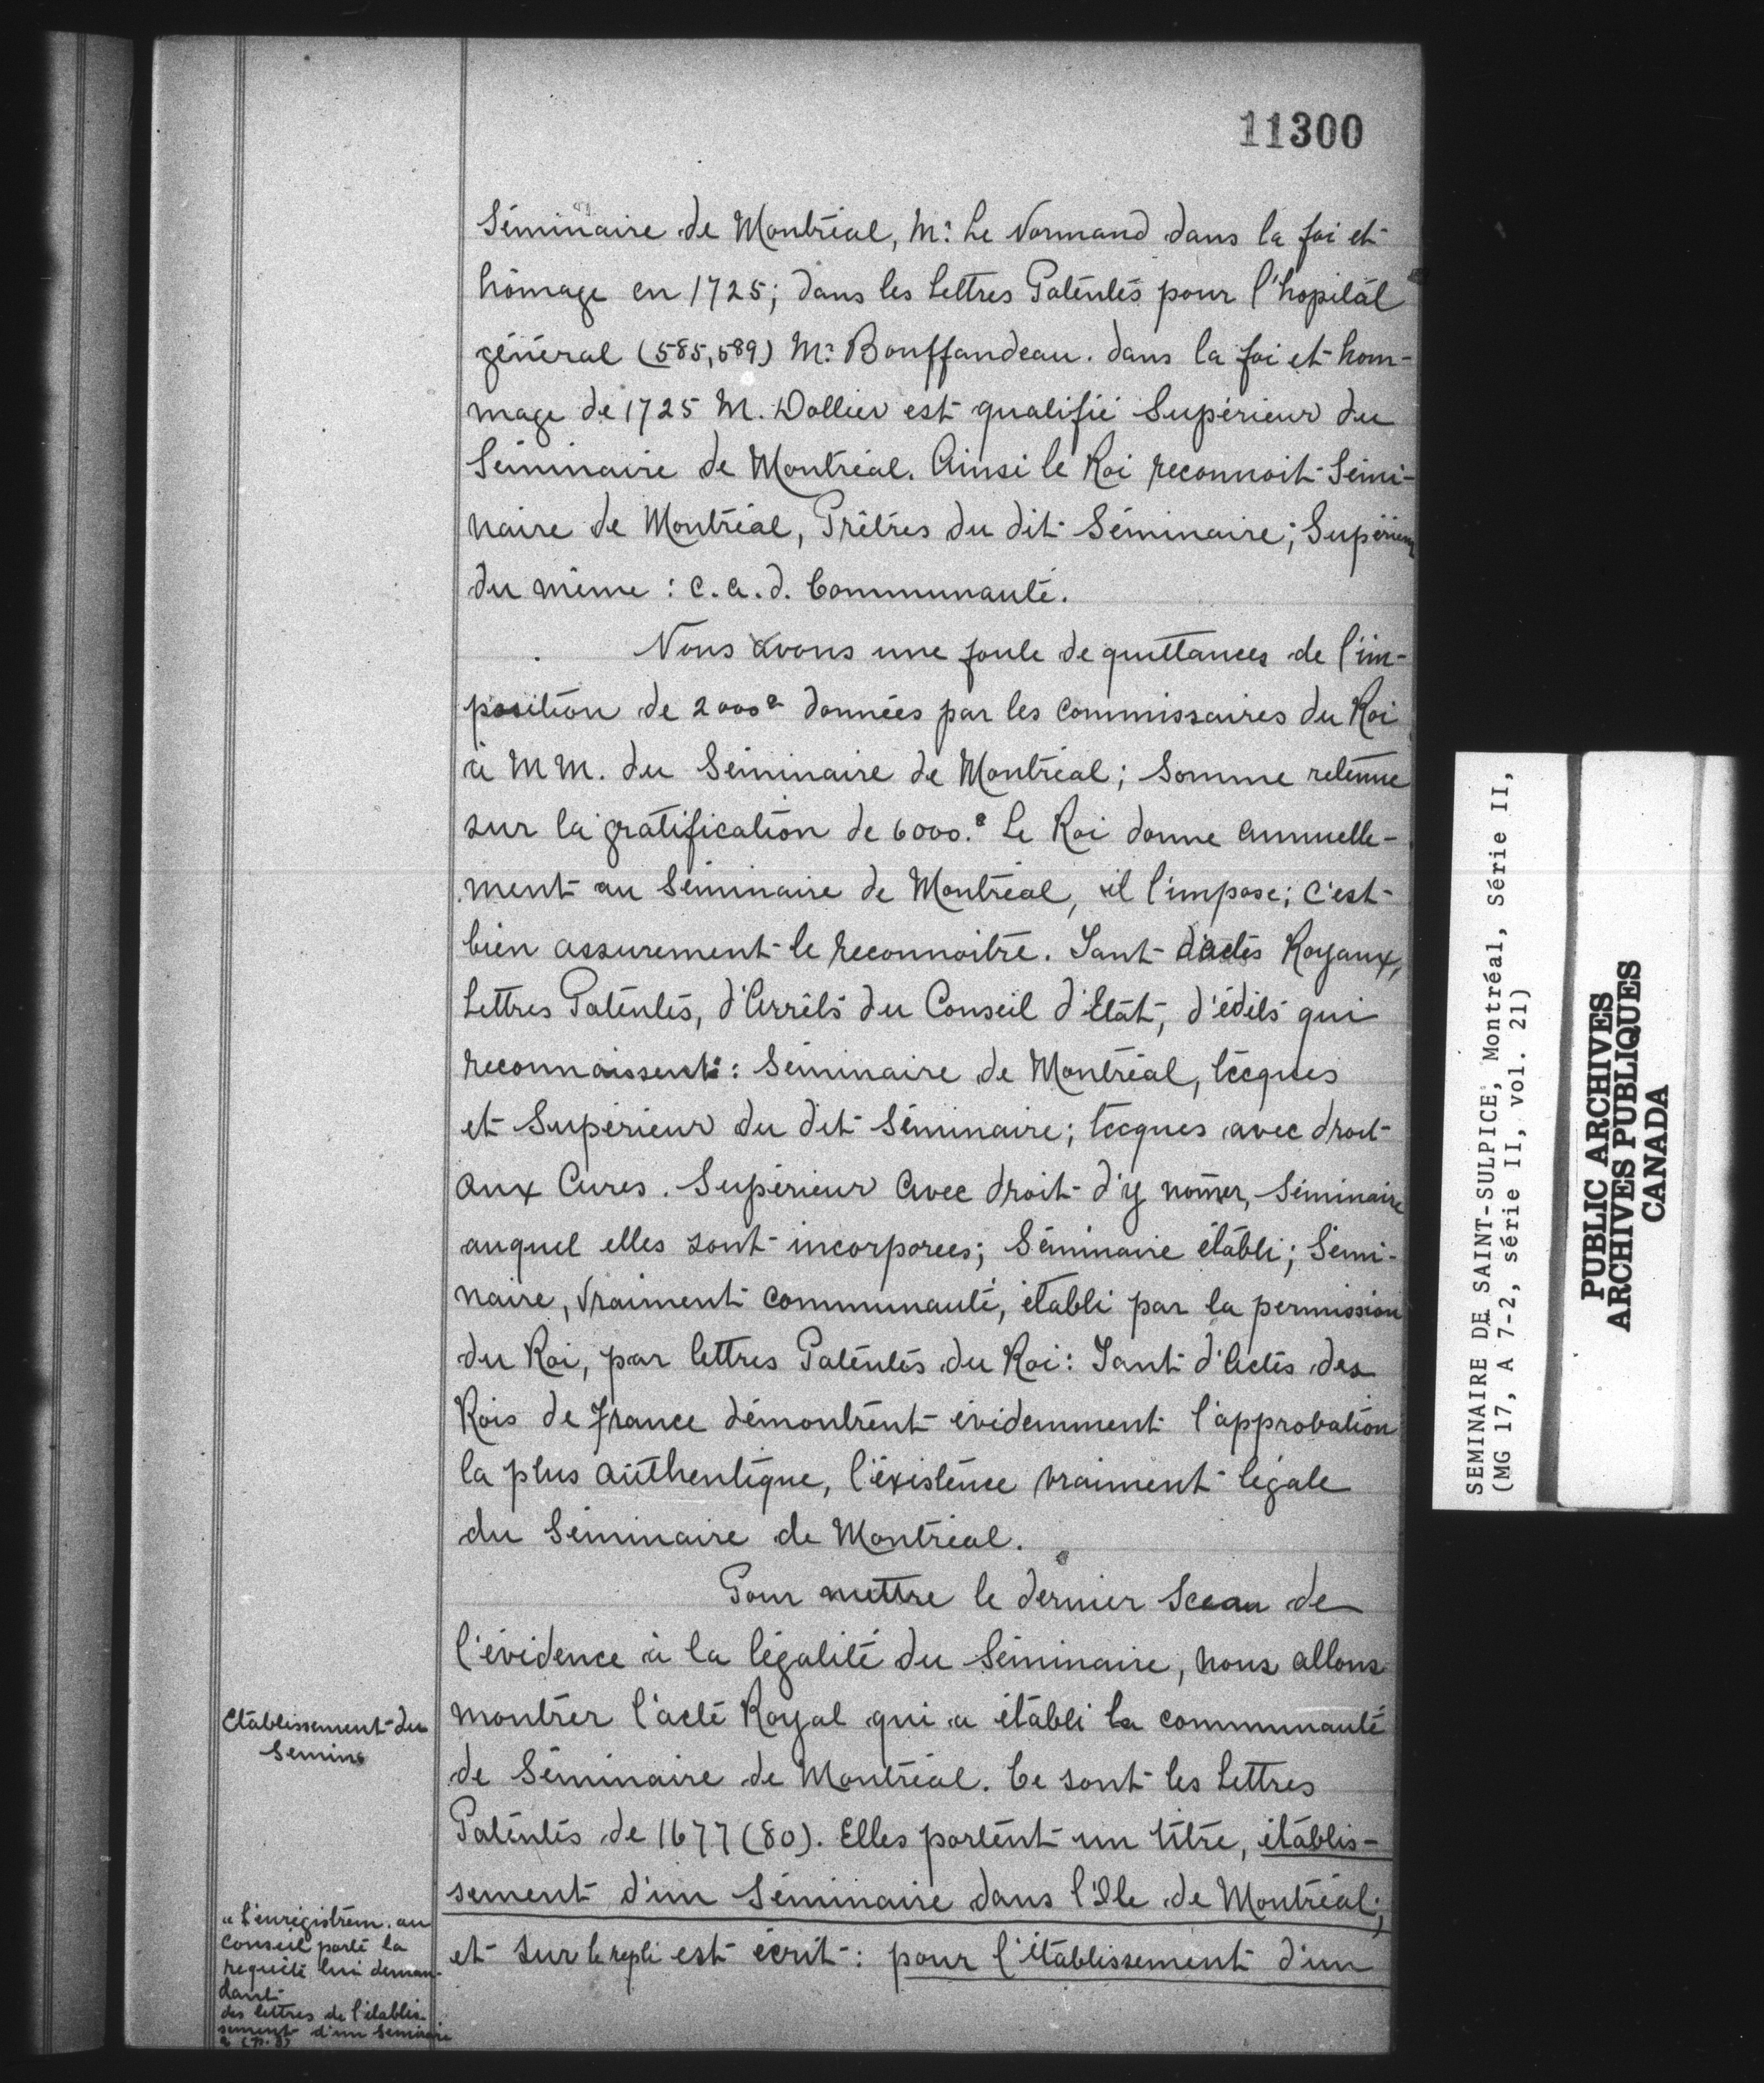 11300
Séminaire de Montréal, Mr. Le Normand dans la foi et
hômage en 1725; dans les Lettres Patentes pour l'hopital
général (585,589) Mr. Bouffandeau. dans la foi et hom-
mage de 1725 M. Dollier est qualifié Supérieur du
Séminaire de Montréal. Ainsi le Roi reconnoit Sémi-
naire de Montréal, Prêtres du dit Séminaire; Supérieur
du même : c.a.d. Communauté.
Nous avons une foule de quittances de l'im-
position de 2000# données par les commissaires du Roi
à MM. du Séminaire de Montréal; Somme retenue
sur la gratification de 6000.# Le Roi donne annuelle-
ment au Séminaire de Montréal, il l'impose; c'est
bien assurement le reconnoitre. Tant d'actes Royaux,
Lettres Patentes, d'Arrêts du Conseil d'Etat, d'édits qui
reconnaissent : Séminaire de Montréal, Eccques
et Supérieur du dit Séminaire; Eccques avec droit
aux Cures. Supérieur avec droit d'y nom̃er, Séminaire
auquel elles sont incorporees; Séminaire établi; Sémi-
naire, vraiment communauté, établi par la permission
du Roi, par lettres Patentes du Roi: Tant d'Actes des
Rois de France démontrent évidemment l'approbation
la plus authentique, l'éxistence vraiment légale
du Séminaire de Montréal.
Pour mettre le dernier Sceau de
l'évidence à la légalité du Séminaire, nous allons
montrer l'acte Royal qui a établi la communauté
de Séminaire de Montréal. Ce sont les Lettres
Patentes de 1677 (80). Elles portent un titre, établis-
sement d'un Séminaire dans l'Ile de Montréal;
et sur le repli est écrit : pour l'établissement d'un
Etablissement du
Semine
"L'enrégistrem. au
Conseil porte la
requête lui deman-
dant
des lettres de l'établis-
sement d'un Seminaire
SEMINAIRE DE SAINT-SULPICE, Montréal, Série II,
(MG 17, A 7-2, série II, vol. 21)
PUBLIC ARCHIVES
ARCHIVES PUBLIQUES
CANADA